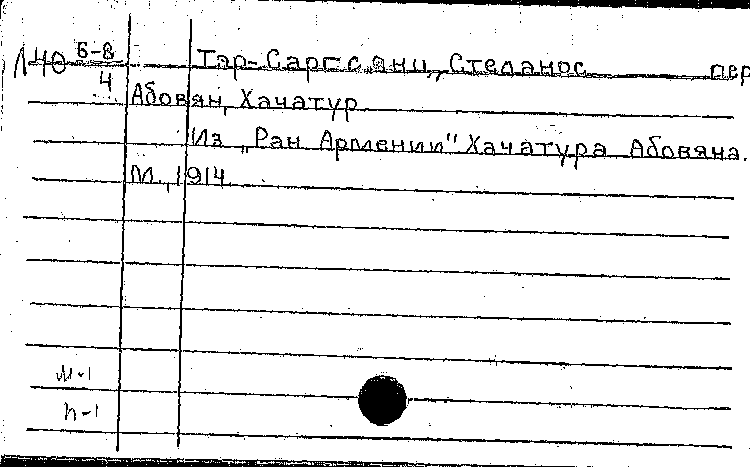 Л40 Б-8 Тэр-Саргсянц, Степанос пер
4
Абовян, Хачатур
Из „Ран Армении" Хачатура Абовяна.
М., 1914
м-1
п-1